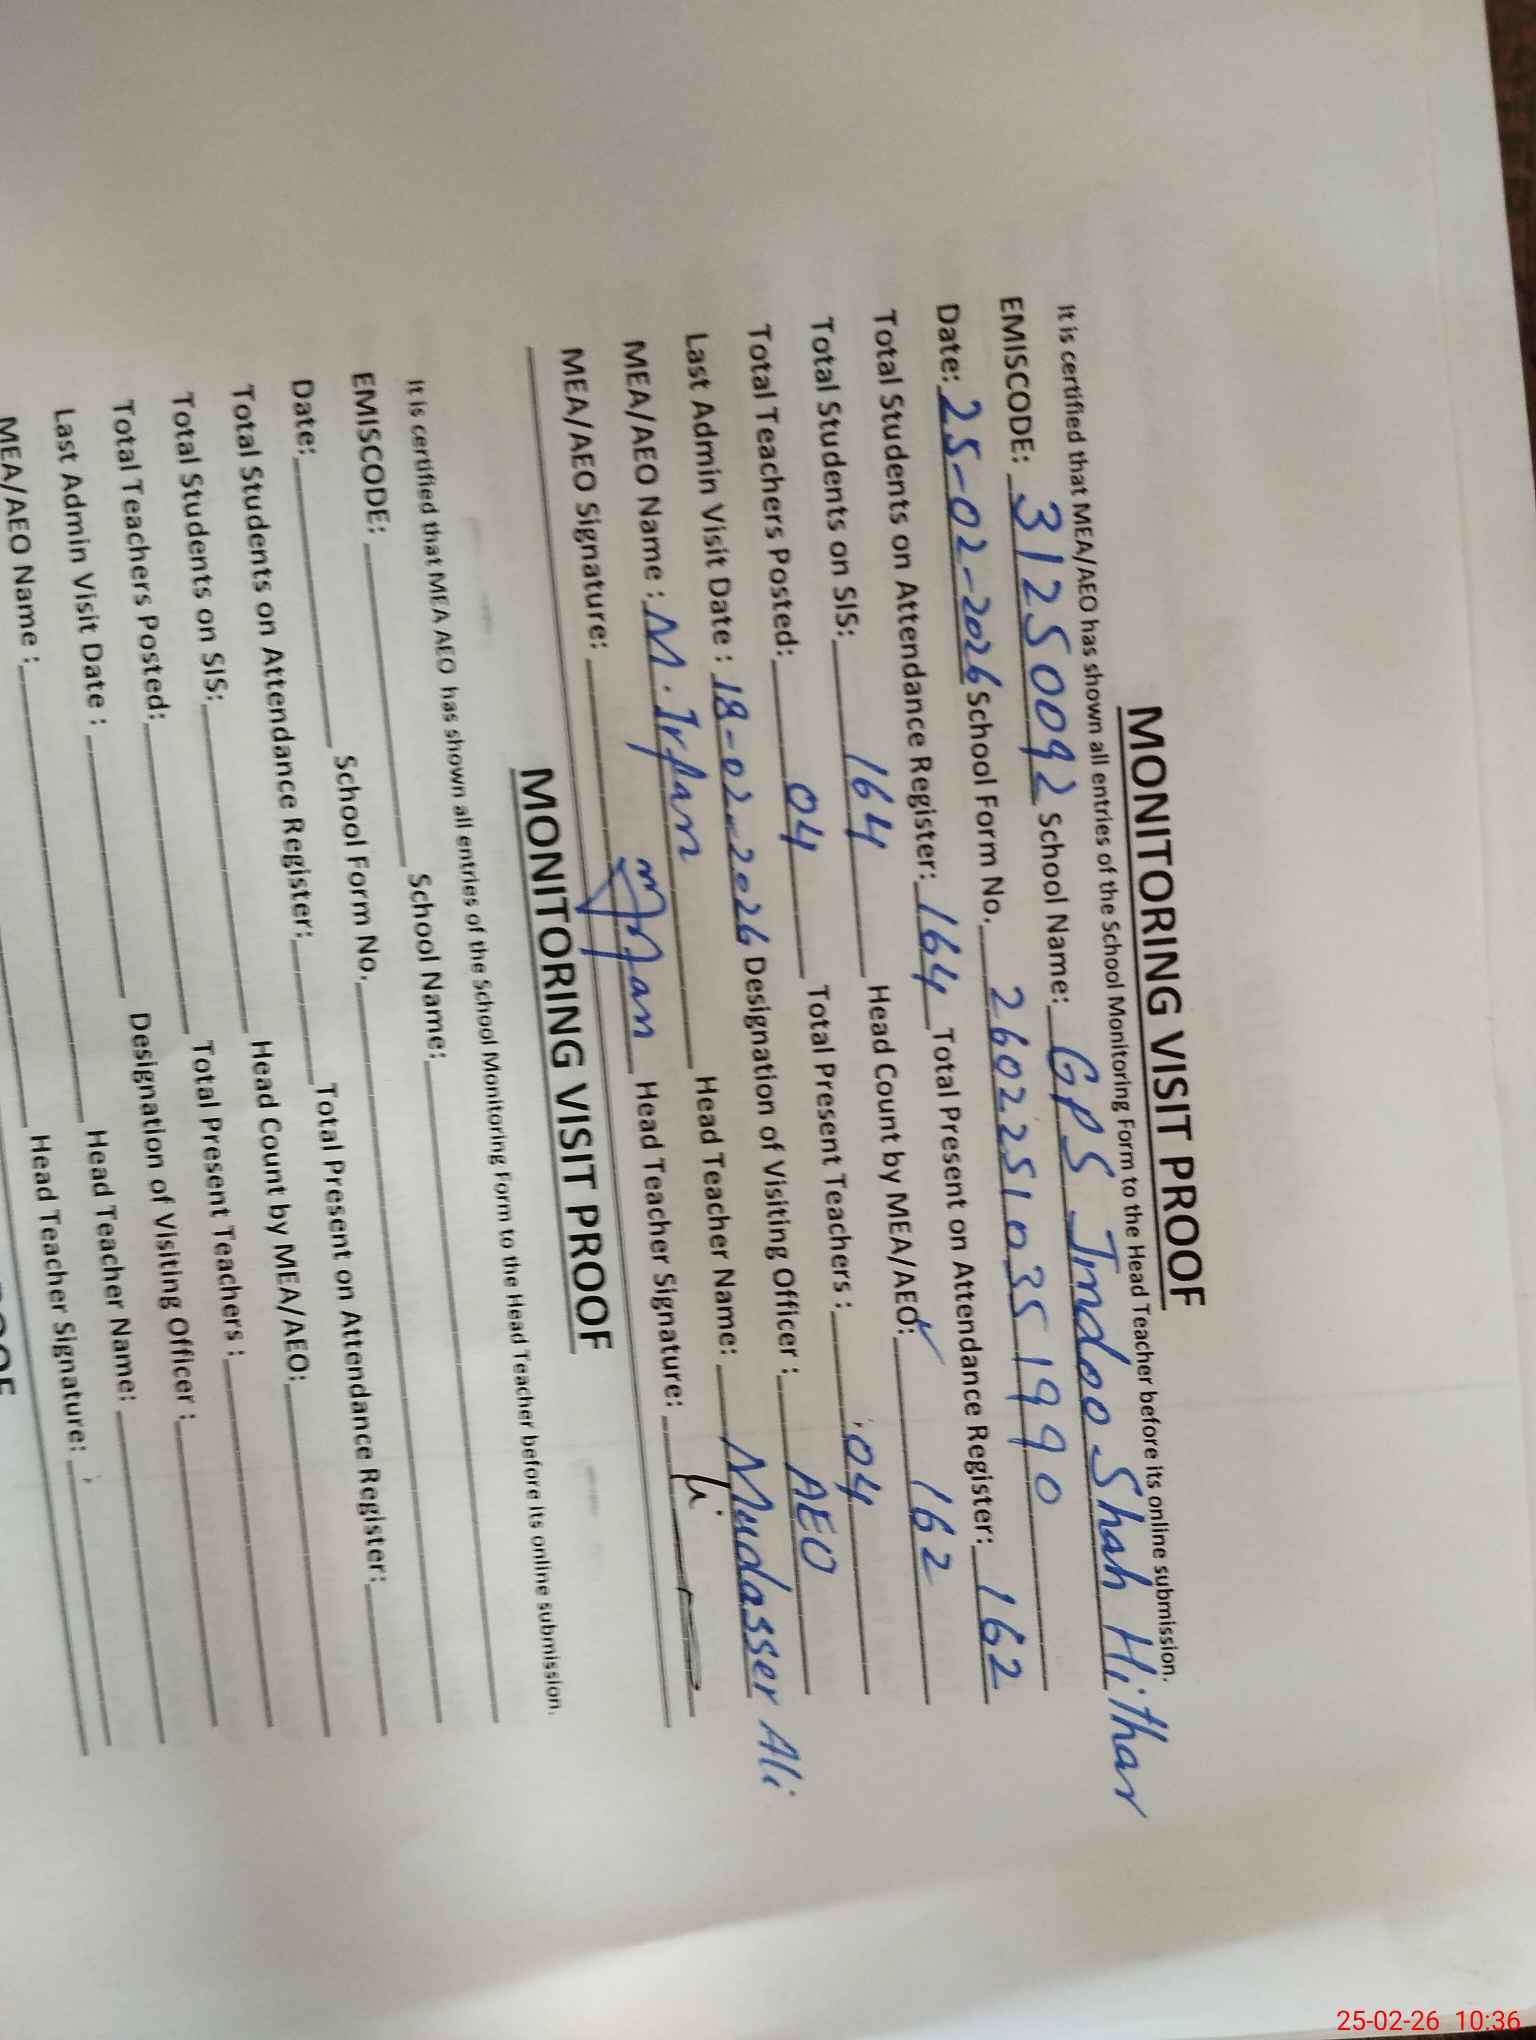 MONITORING VISIT PROOF
It is certified that MEA/AEO has shown all entries of the School Monitoring Form to the Head Teacher before its online submission.
EMISCODE: 31250092 School Name: GPS Jmdoo Shah Hithar
Date: 25-02-2026 School Form No. 26022510351990
Total Students on Attendance Register: 164 Total Present on Attendance Register: 162
Total Students on SIS: 164 Head Count by MEA/AEO: 162
Total Teachers Posted: 04 Total Present Teachers : 04
Last Admin Visit Date : 18-02-2026 Designation of Visiting Officer : AEO
MEA/AEO Name : M. Irfan Head Teacher Name: Mudasser Ali
MEA/AEO Signature: Head Teacher Signature:
MONITORING VISIT PROOF
It is certified that MEA AEO has shown all entries of the School Monitoring Form to the Head Teacher before its online submission.
EMISCODE: School Name:
Date: School Form No.
Total Students on Attendance Register: Total Present on Attendance Register:
Total Students on SIS: Head Count by MEA/AEO:
Total Teachers Posted: Total Present Teachers :
Last Admin Visit Date : Designation of Visiting Officer :
MEA/AEO Name : Head Teacher Name:
Head Teacher Signature:
25-02-26 10:36